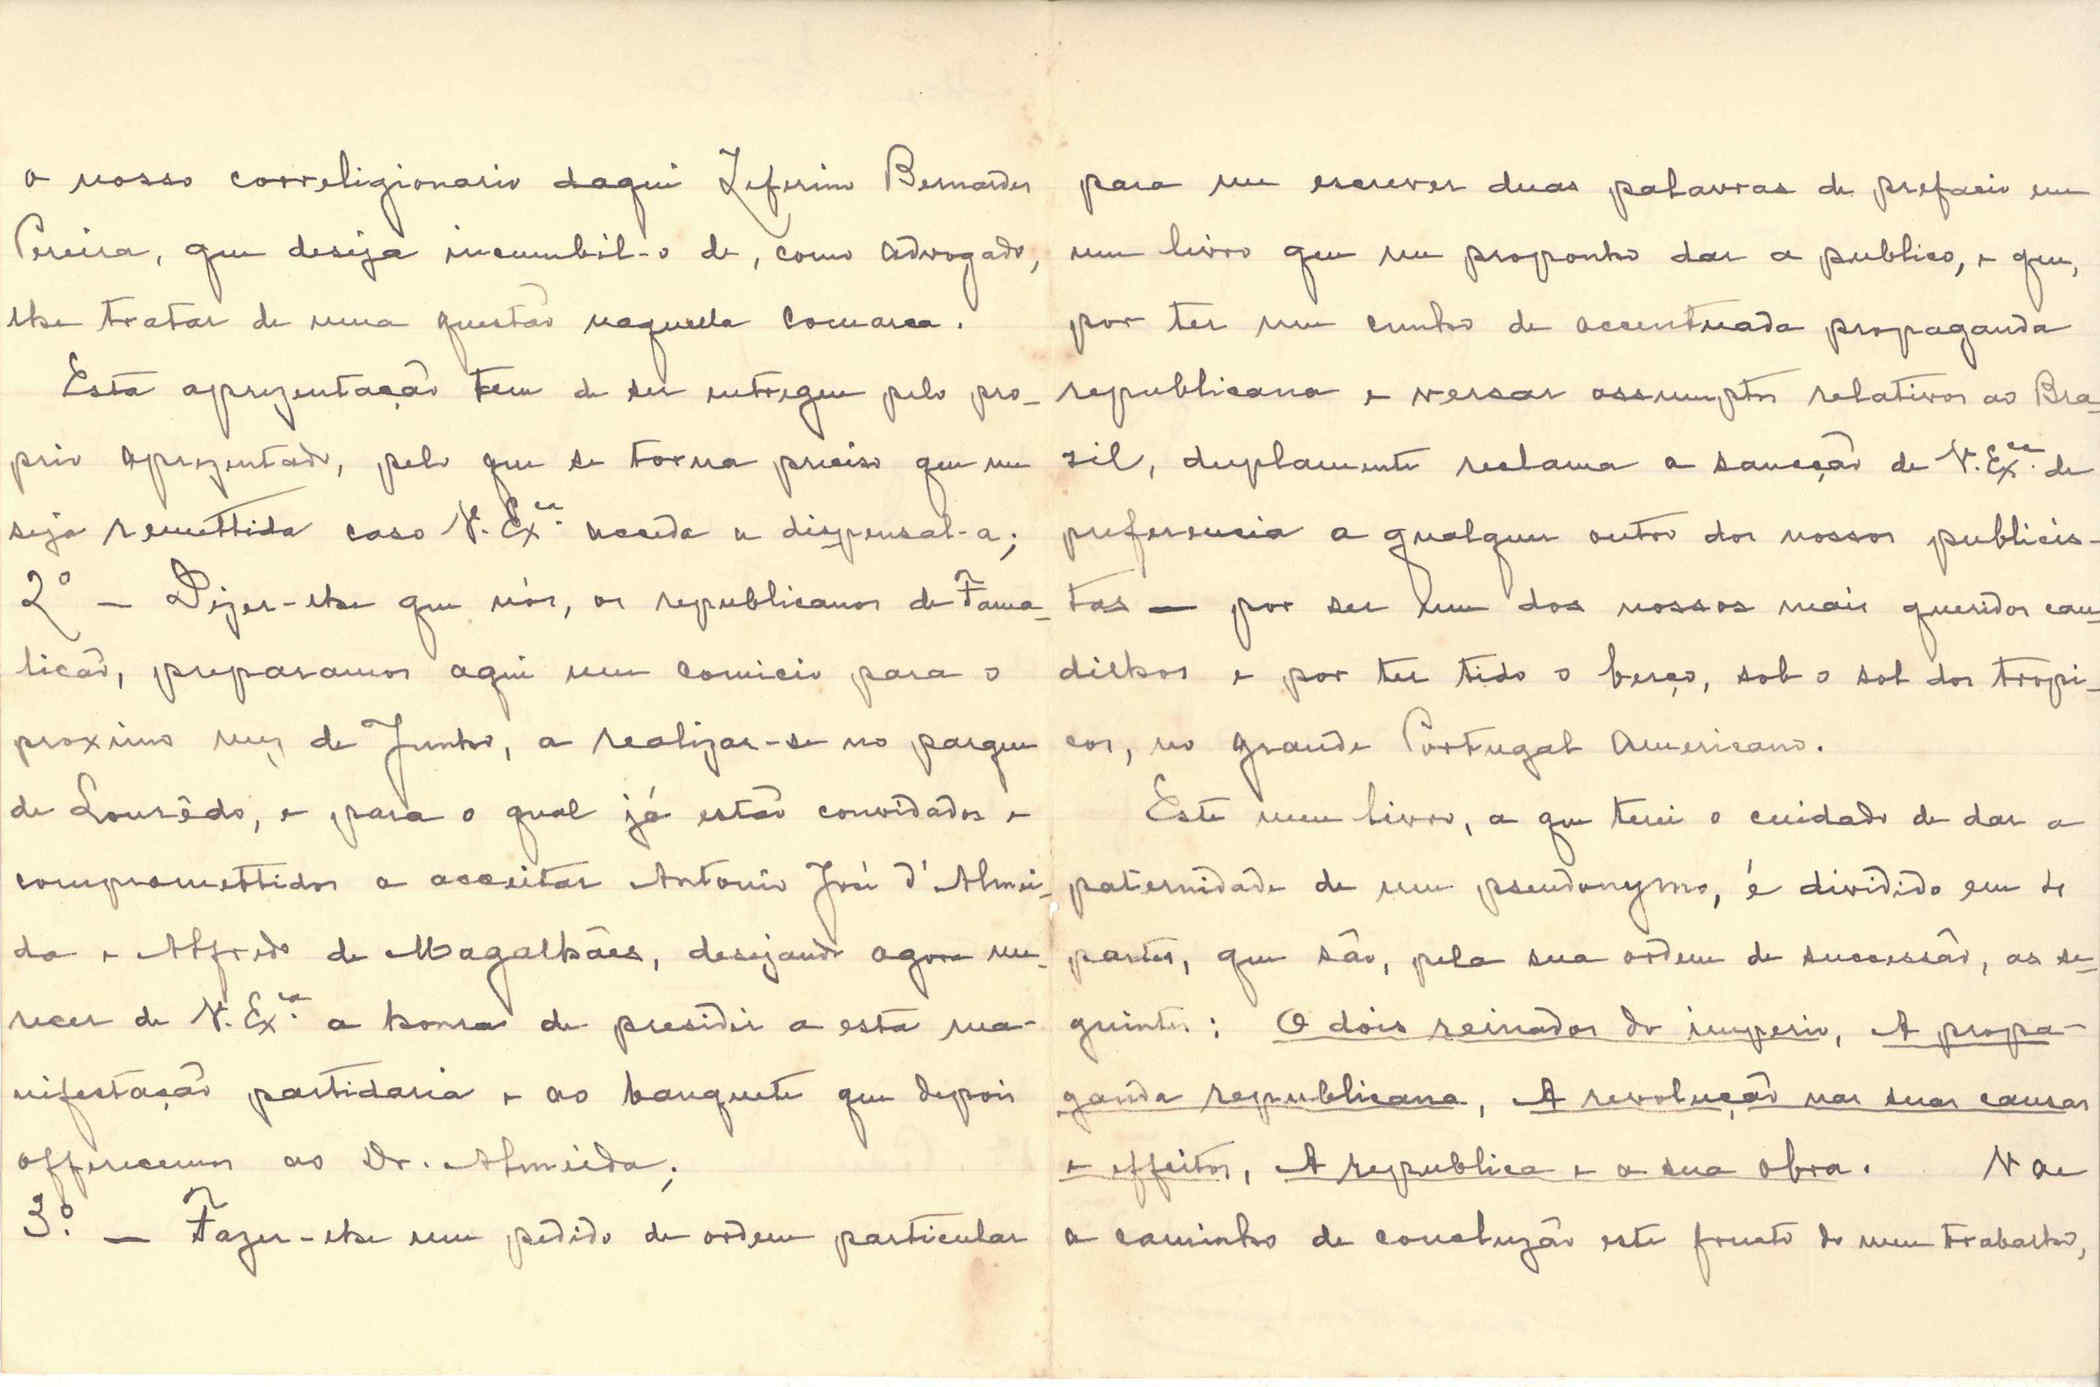 o nosso correligionario daqui Zeferino Bernardes
Pereira, que deseja incumbil-o de, como advogado,
lhe tratar de uma questão naquella comarca.
Esta aprezentação tem de ser entregue pelo pro-
prio aprezentado, pelo que se torna preciso que me
seja remettida caso V. Ex.cia aceda a dispensal-a;
2º — Dizer-lhe que nós, os republicanos de Fama-
licão, preparamos aqui um comicio para o
proximo mez de Junho, a realizar-se no parque
de Lourêdo, e para o qual já estão convidados e
comprometidos a acceitar Antonio José d'Almei-
da e Alfredo de Magalhães, desejando agora me-
recer de V. Ex.cia a honra de presidir a esta ma-
nifestação partidaria e ao banquete que depois
offerecemos ao Dr. Almeida;
3º. — Fazer-lhe um pedido de ordem particular
para me escrever duas palavras de prefacio em
um livro que me proponho dar a publico, e que,
por ter um cunho de accentuada propaganda
republicana e versar assumptos relativos ao Bra-
zil, duplamente reclama a sancção de V. Ex.cia de
preferencia a qualquer outro dos nossos publicis-
tas — por ser um dos nossos mais queridos cau-
dilhos e por ter tido o berço, sob o sol dos tropi-
cos, no grande Portugal Americano.
Este meu livro, a que terei o cuidado de dar a
paternidade de um pseudonymo, é dividido em 4
partes, que são, pela sua ordem de successão, as se-
guintes: O dois reinados do imperio, A propa-
ganda republicana, A revolução nas suas causas
e effeitos, A republica e a sua obra. Vae
a caminho de concluzão este fructo do meu trabalho,